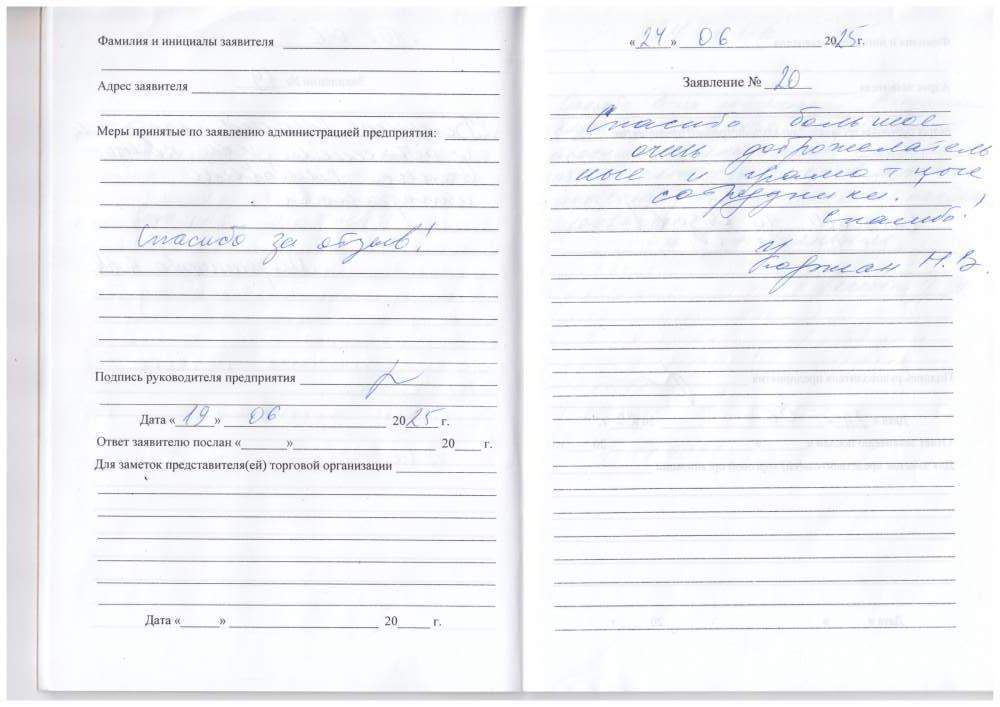 Фамилия и инициалы заявителя
Адрес заявителя
Меры принятые по заявлению администрацией предприятия:
Спасибо за отзыв!
Подпись руководителя предприятия
Дата «19» 06 2025 г.
Ответ заявителю послан «  » 20 г.
Для заметок представителя(ей) торговой организации
Дата «  » 20 г.
«24» 06 2025г.
Заявление № 20
Спасибо большое
очень доброжелатель
ные и грамотные
сотрудники.
Спасибо!
Н.В.